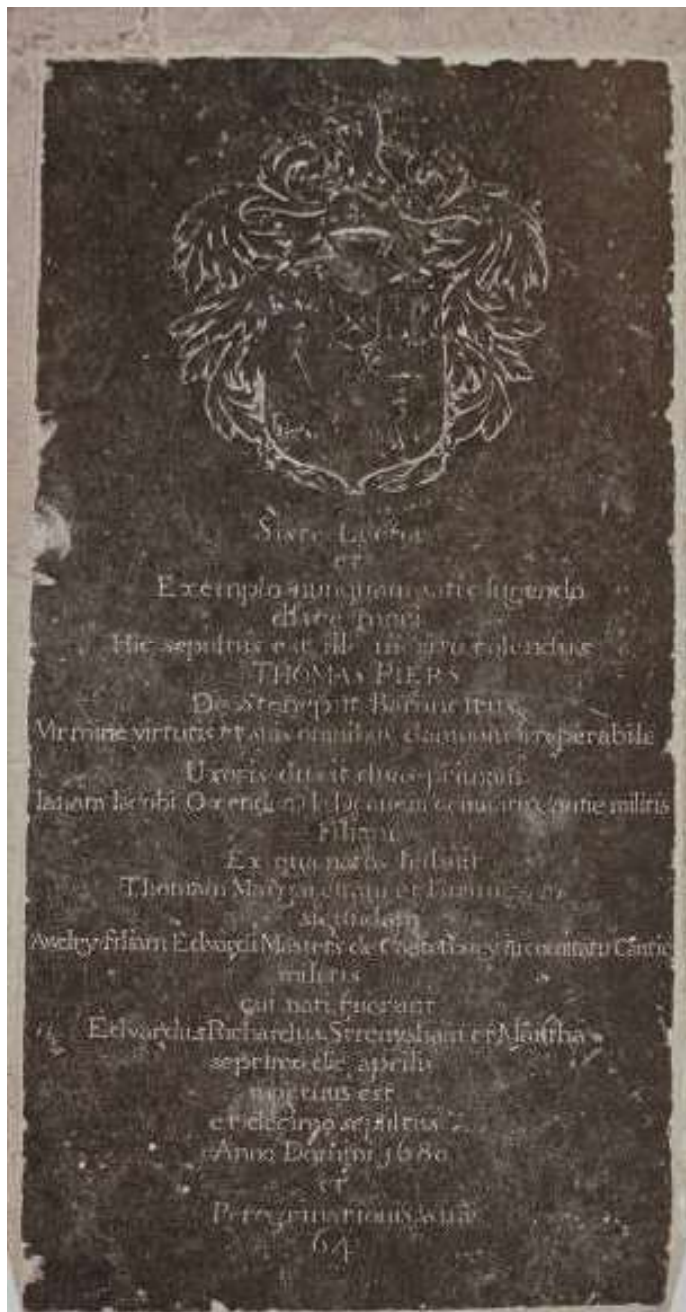 Siste Lector
et
Exemplo nunquam satis lugendo
disce mori
Hic sepultus est ille in ævo colendus
THOMAS PIERS
De Stenepitt Baronettus
Vir mirie virtutis et suis omnibus damnum irreparabile
Uxoris duxit duas primam
Iacobi Oxenden de in comitatu Cantie militis
Filiam
Ex qua natos habuit
Thomam Margaretam et
secundam
Awdry filiam Edwardi Masters de in comitatu Cantie
militis
cui nati fuerunt
Edvardus Richardus Strensham et Martha
septimo die aprilis
mortuus est
et decimo sepultus
Anno Domini 1680
et
Peregrinationis suæ
64